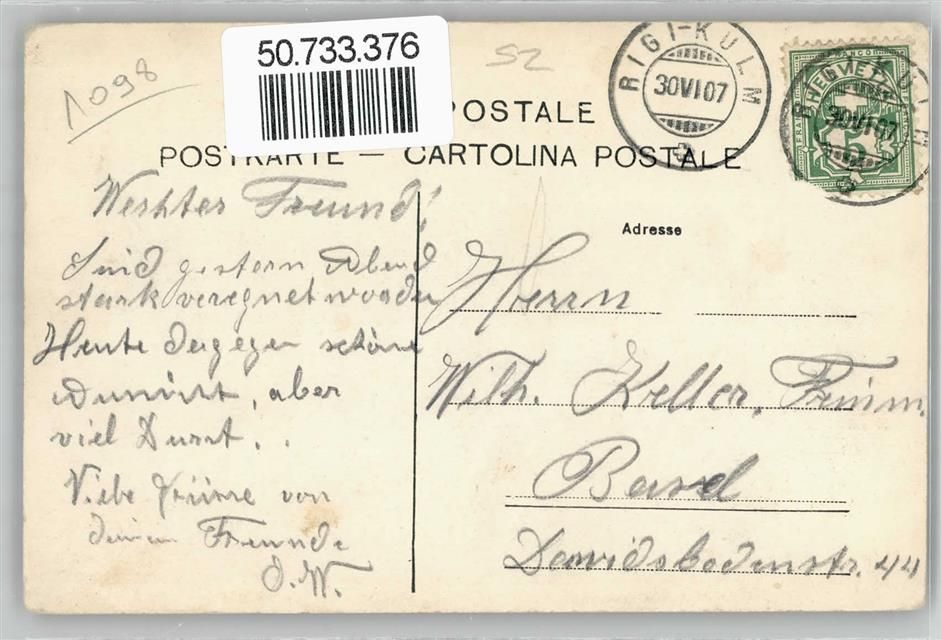 50.733.376
1098
SZ
RIGI-KULM
30 VI 07
HELVETIA
FRANCO
5
POSTALE
POSTKARTE — CARTOLINA POSTALE
Adresse
Werhter Freund!
Sind gestern Abend
stark veregnet worden
Heute dergegen schöne
aber
viel Durst. . .
Viele Grüsse von
deinem Freunde
J. W.
Herrn
Wilh. Keller,
Basel
Davidsbodenstr. 44